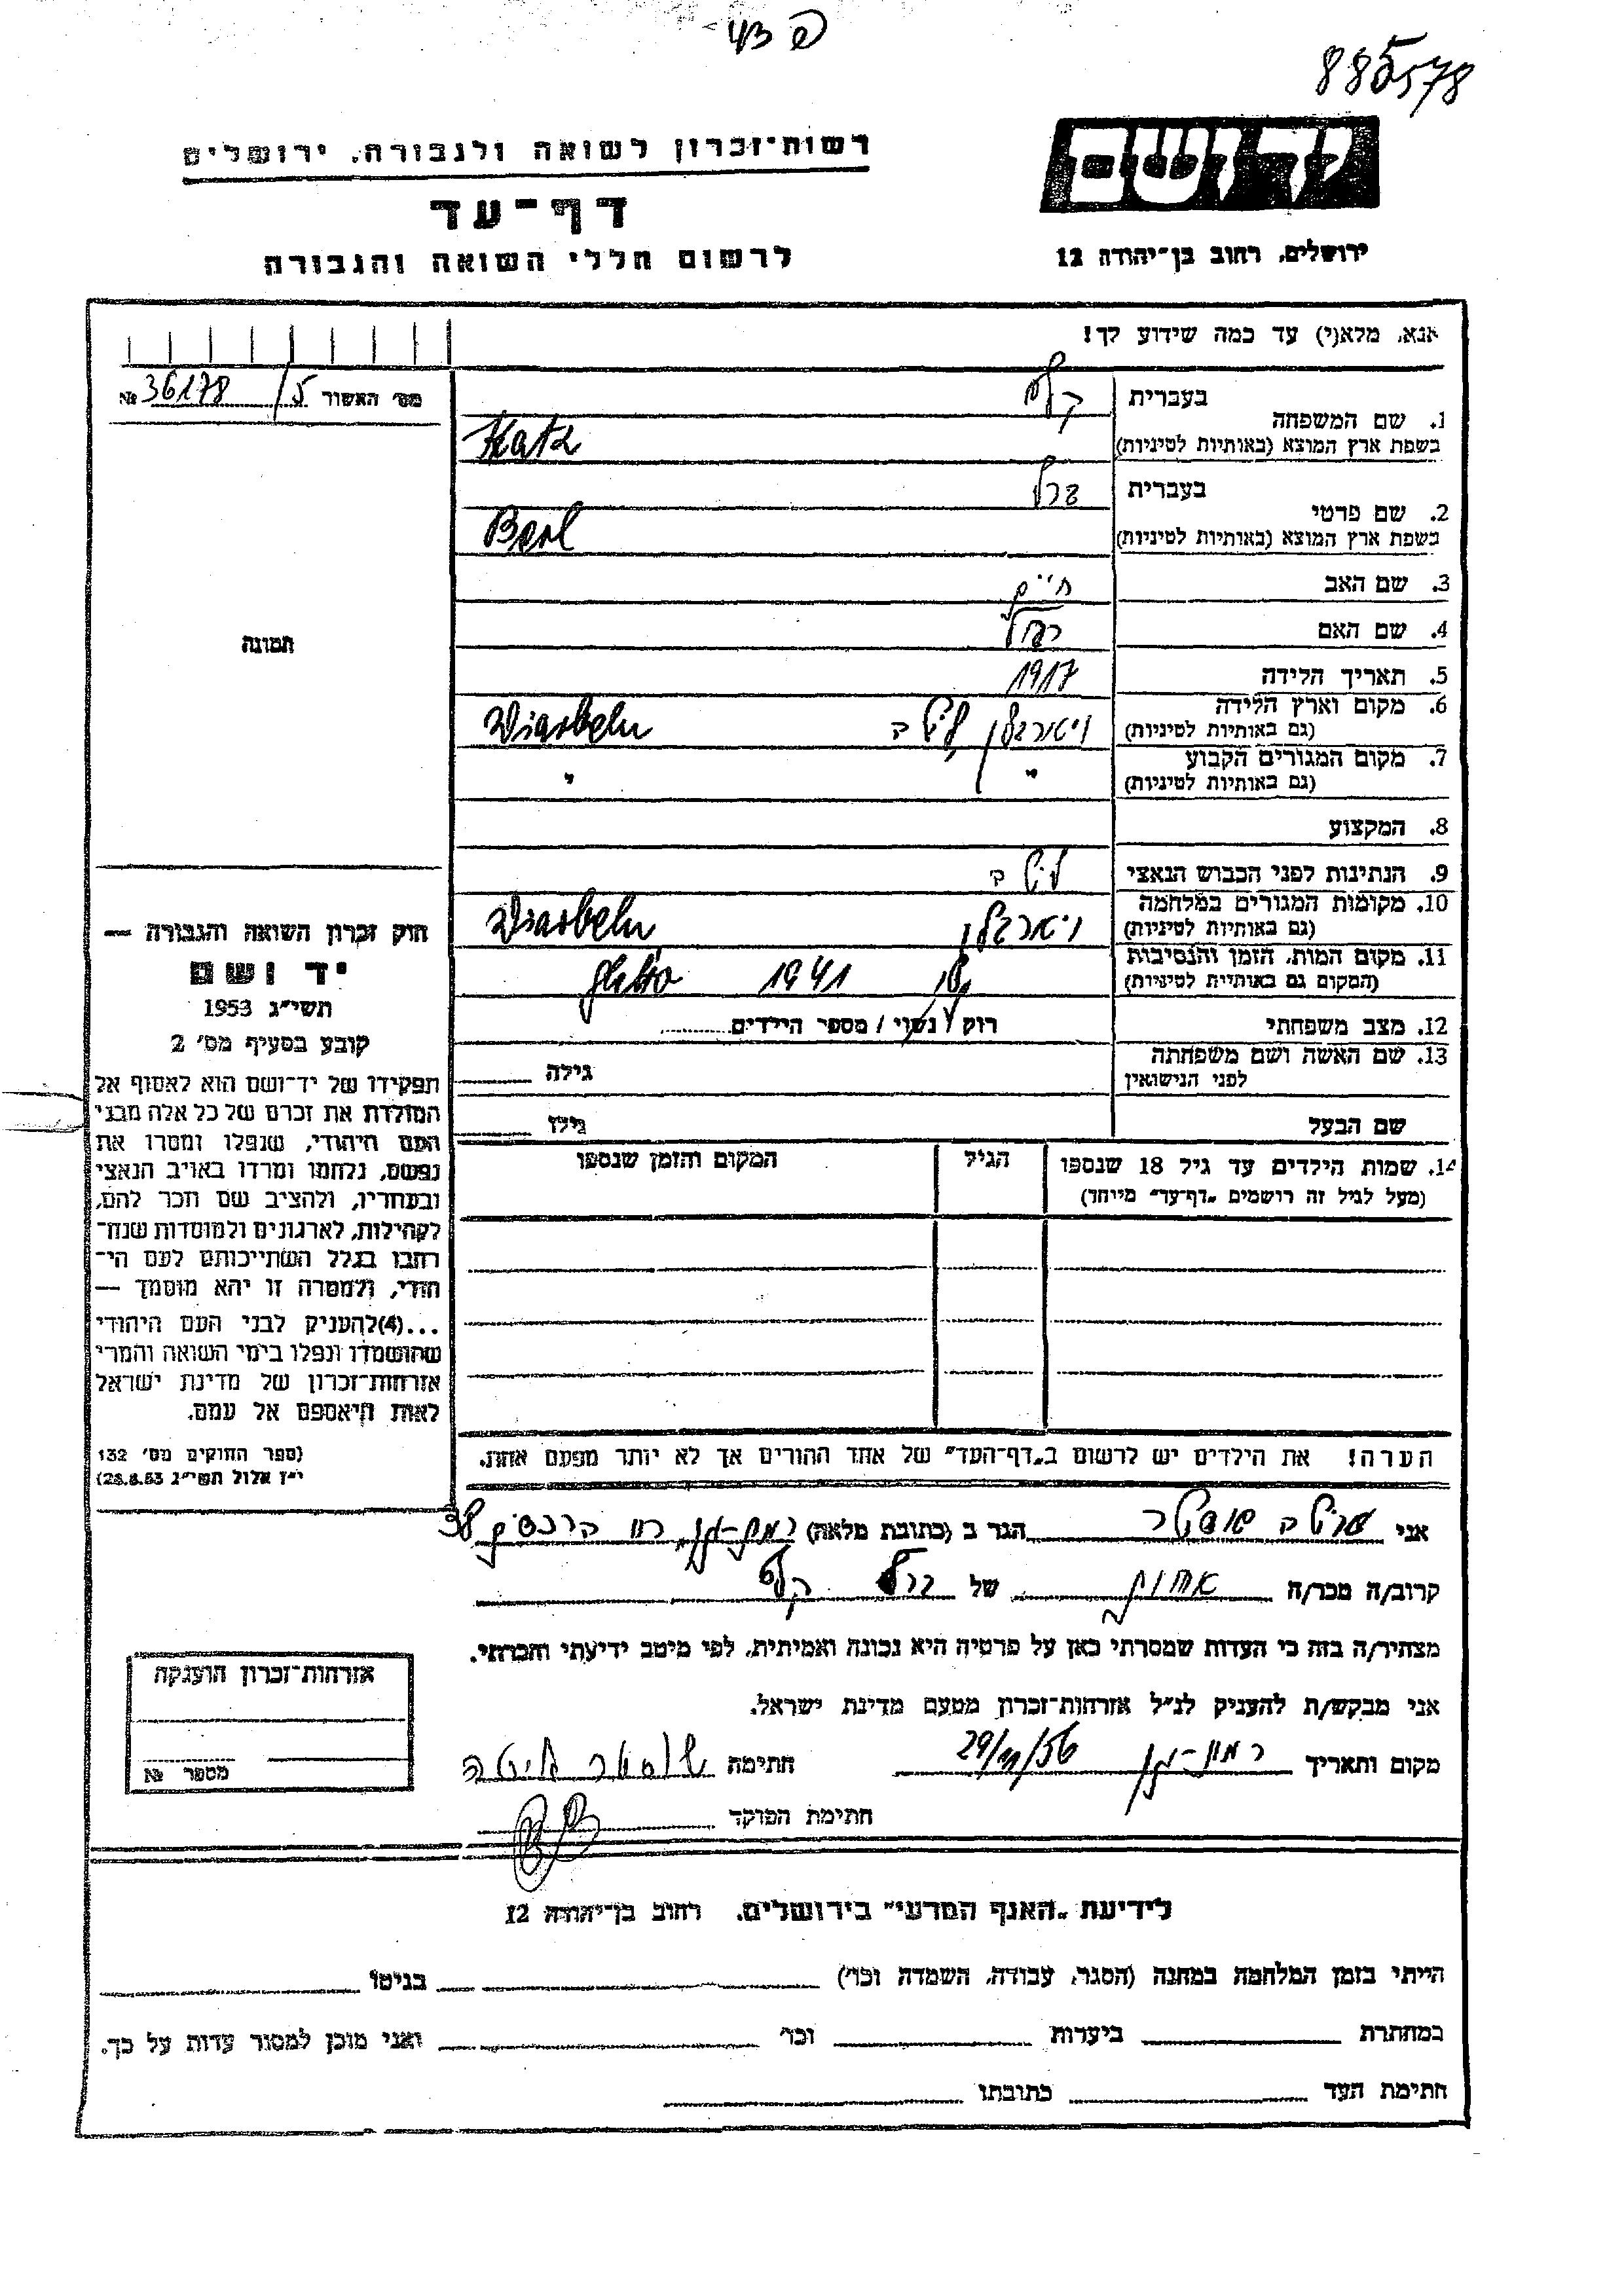 פ 43
885578
רשות־זכרון לשואה ולגבורה, ירושלים
דף־עד
לרשום חללי השואה והגבורה
יד ושם
ירושלים, רחוב בן־יהודה 12
אנא, מלא(י) עד כמה שידוע לך!
מס' האשור 5/ 36178 №
תמונה
1. שם המשפחה
בעברית כץ
בשפת ארץ המוצא (באותיות לטיניות) Katz
2. שם פרטי
בעברית ברל
בשפת ארץ המוצא (באותיות לטיניות) Berl
3. שם האב חיים
4. שם האם רחל
5. תאריך הלידה 1917
6. מקום וארץ הלידה
(גם באותיות לטיניות) ליטה
7. מקום המגורים הקבוע
(גם באותיות לטיניות) " "
8. המקצוע
9. הנתינות לפני הכבוש הנאצי ליטה
10. מקומות המגורים במלחמה
(גם באותיות לטיניות)
11. מקום המות, הזמן והנסיבות
(המקום גם באותיות לטיניות) 1941 ghetto
12. מצב משפחתי רוק / נשוי / מספר הילדים
13. שם האשה ושם משפחתה
לפני הנישואין גילה
שם הבעל גילו
14. שמות הילדים עד גיל 18 שנספו הגיל המקום והזמן שנספו
(מעל לגיל זה רושמים „דף־עד" מייחד)
הערה! את הילדים יש לרשום ב„דף־העד" של אחד ההורים אך לא יותר מפעם אחת.
חוק זכרון השואה והגבורה —
יד ושם
תשי״ג 1953
קובע בסעיף מס' 2
תפקידו של יד־ושם הוא לאסוף אל
המולדת את זכרם של כל אלה מבני
העם היהודי, שנפלו ומסרו את
נפשם, נלחמו ומרדו באויב הנאצי
ובעוזריו, ולהציב שם וזכר להם,
לקהילות, לארגונים ולמוסדות שנח־
רבו בגלל השתייכותם לעם הי־
הודי, ולמטרה זו יהא מוסמך —
...(4)להעניק לבני העם היהודי
שהושמדו ונפלו בימי השואה והמרי
אזרחות־זכרון של מדינת ישראל
לאות היאספם אל עמם.
(ספר החוקים מס' 132
י״ז אלול תשי״ג 28.8.53)
אני הגר ב (כתובת מלאה) רמת-גן, 38
קרוב/ה מכר/ה אחות של ברל כץ
מצהיר/ה בזה כי העדות שמסרתי כאן על פרטיה היא נכונה ואמיתית, לפי מיטב ידיעתי והכרתי.
אני מבקש/ת להעניק לנ״ל אזרחות־זכרון מטעם מדינת ישראל.
מקום ותאריך רמת-גן 29/11/56 חתימה
חתימת הפוקד
אזרחות־זכרון הוענקה
מספר №
לידיעת „האגף המדעי" בירושלים, רחוב בן־יהודה 12
הייתי בזמן המלחמה במחנה (הסגר, עבודה, השמדה וכו') בגיטו
במחתרת ביערות וכו' ואני מוכן למסור עדות על כך.
חתימת העד כתובתו